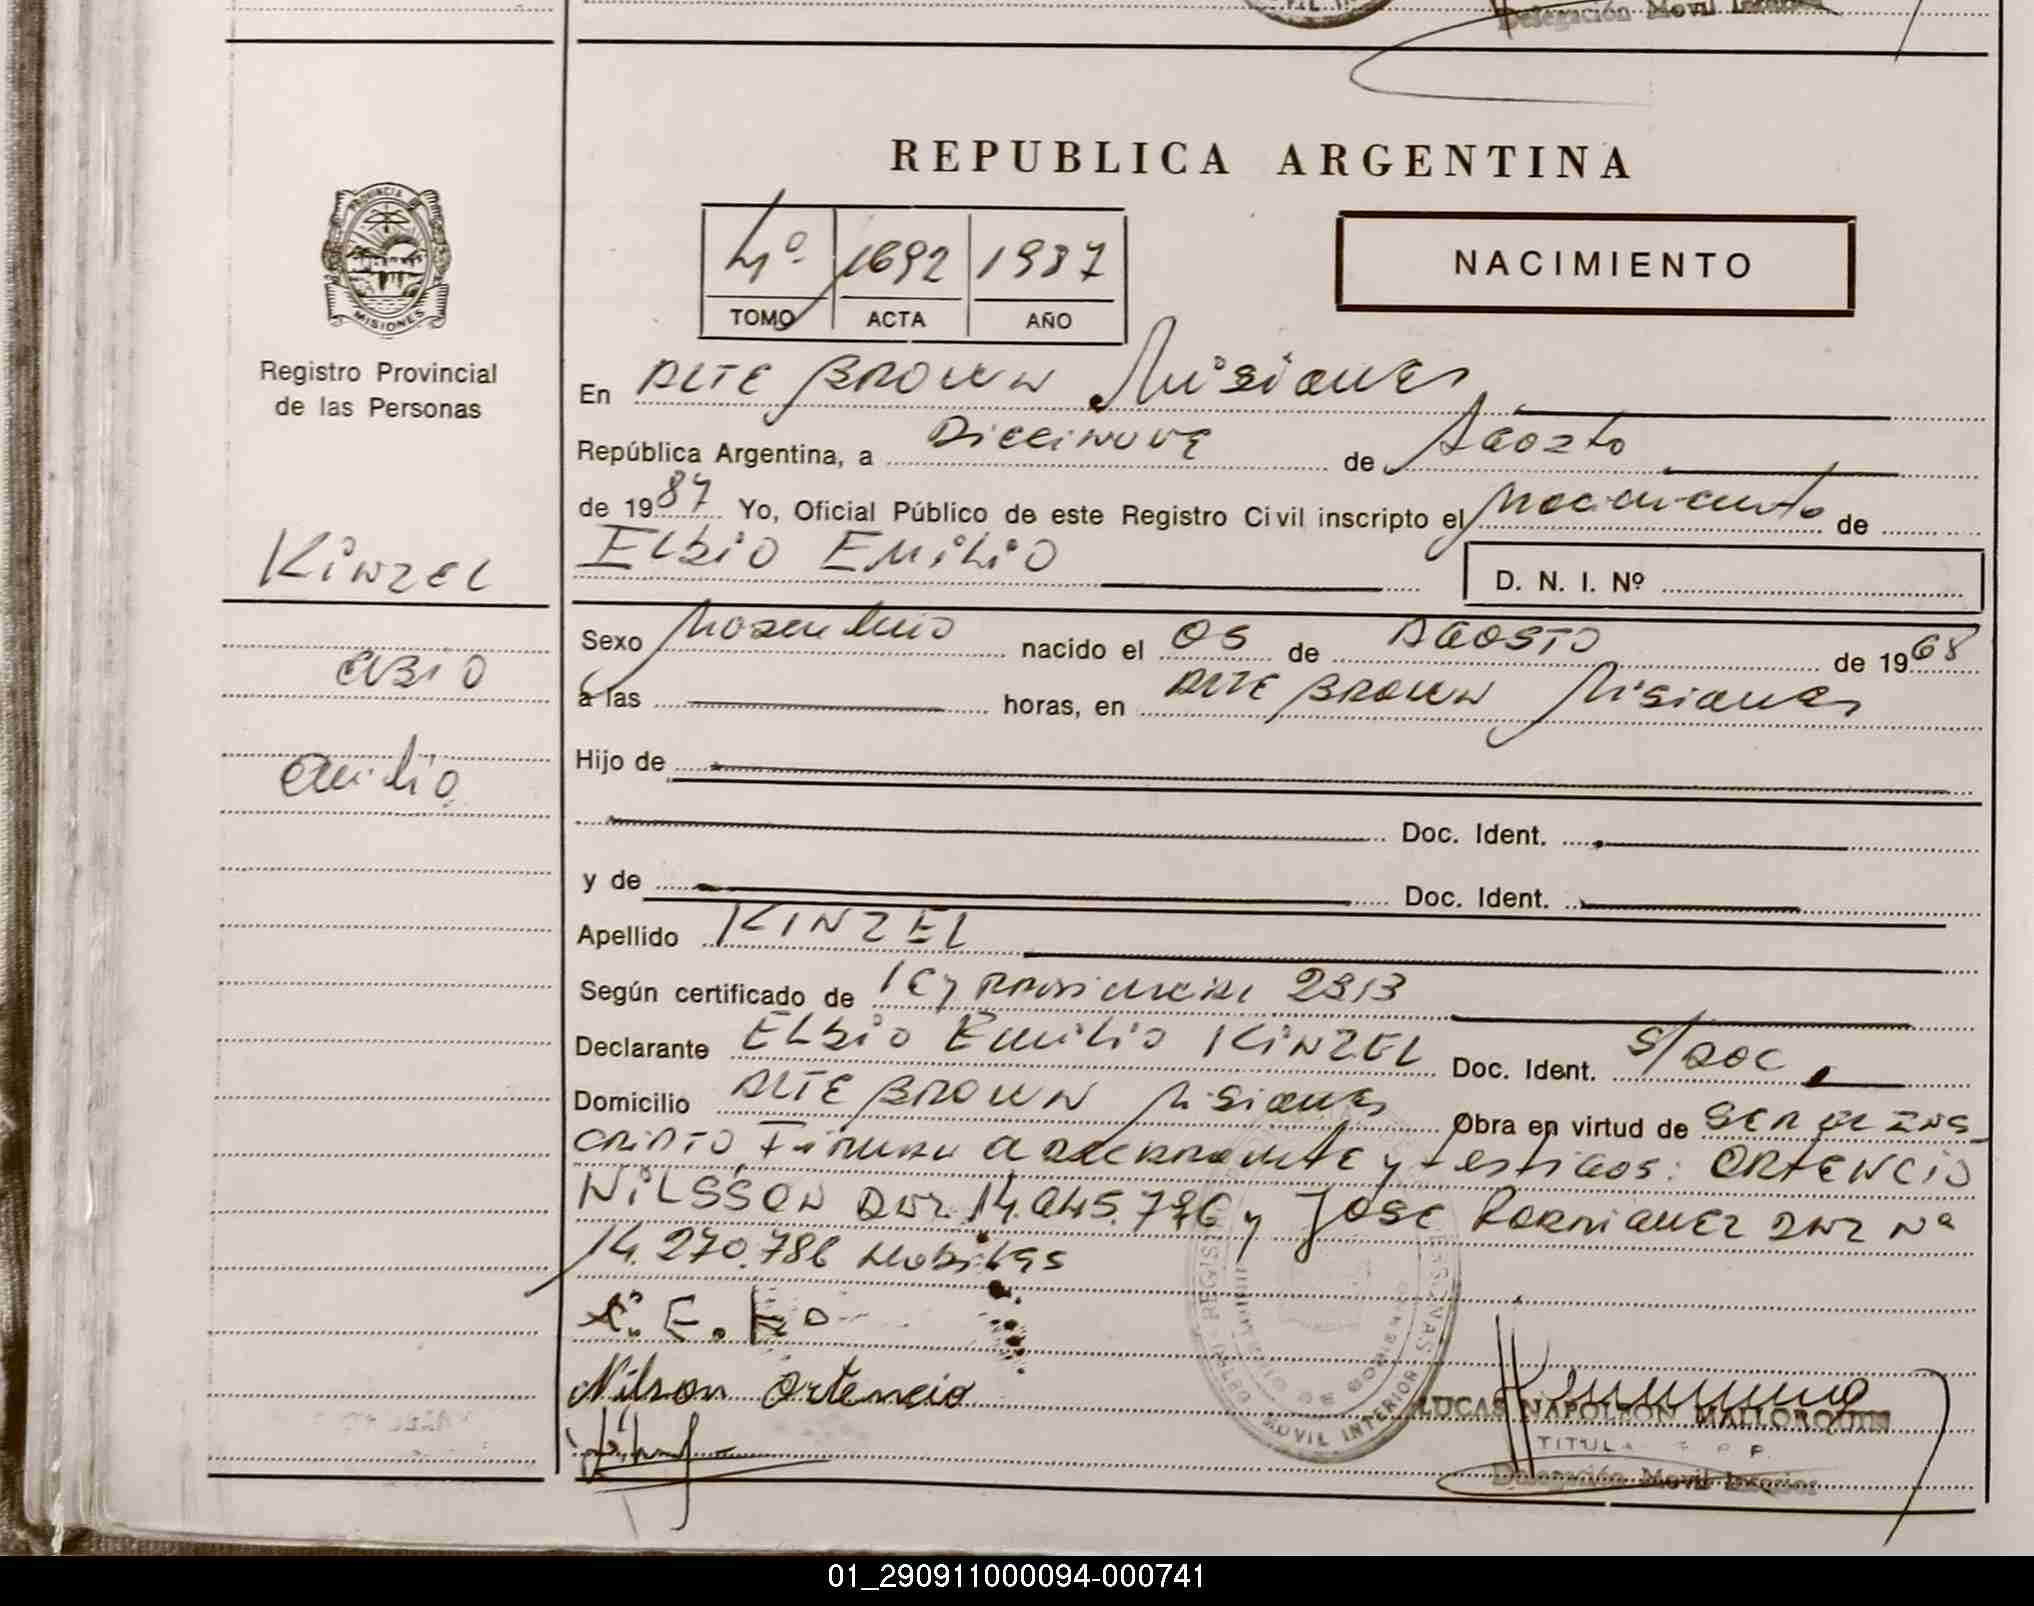 Delegación Movil Interior
REPUBLICA ARGENTINA
PROVINCIA DE
MISIONES
Registro Provincial
de las Personas
4º 1692 1987
TOMO ACTA AÑO
NACIMIENTO
En ALTE BROWN Misiones
República Argentina, a Diecinueve de Agosto
de 1987 Yo, Oficial Público de este Registro Civil inscripto el Nacimiento de
ELBIO EMILIO
D. N. I. Nº
KiNZEL
ELBIO
Emilio
Sexo Masculino nacido el 05 de AGOSTO de 1968
a las horas, en ALTE BROWN Misiones
Hijo de
Doc. Ident.
y de Doc. Ident.
Apellido KINZEL
Según certificado de LEY PROVINCIAL 2313
Declarante ELBIO EMILIO KINZEL Doc. Ident. S/DOC.
Domicilio ALTE BROWN Misiones Obra en virtud de SER INS
CRIPTO, Firman y testigos: ORTENCIO
NILSSON DNI. y JOSE RODRIGUEZ DNI Nº
14.270.786
E. E.
Nilson Ortencio
MOVIL INTERIOR
LUCAS NAPOLEON MALLORQUIN
TITULAR
Delegación Movil Interior
01_290911000094-000741